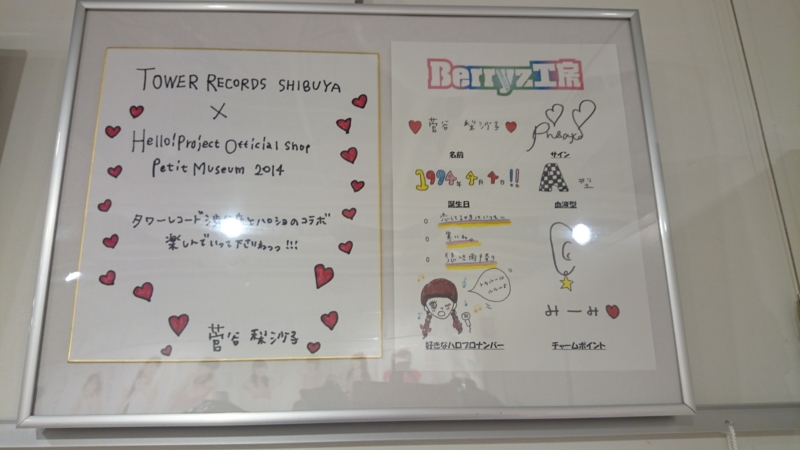 TOWER RECORDS SHIBUYA
×
Hello! Project Official Shop
Petit Museum 2014
タワーレコード渋谷店とハロショのコラボ
楽しんでいって下さいねっっ!!!
菅谷 梨沙子
Berryz工房
菅谷 梨沙子
名前
サイン
1994年4月4日!!
A型
誕生日
血液型
みーみ
好きなハロプロナンバー
チャームポイント